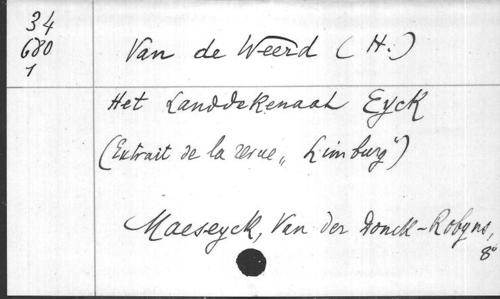 34
680
1
Van de Weerd (H.)
Het Landdekenaat Eyck
(Extrait de la revue „Limburg")
Maeseyck, Van der Donck-Robyns,
8°